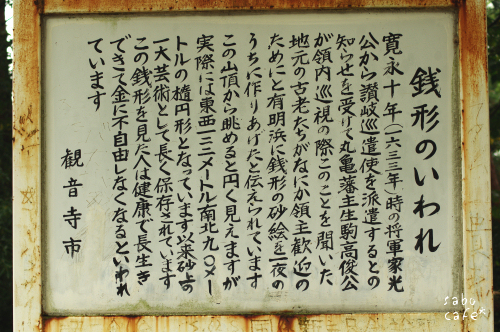 銭形のいわれ
寛永十年(一六三三年)時の将軍家光
公から讃岐巡遣使を派遣するとの
知らせを受けて丸亀藩主生駒高俊公
が領内巡視の際このことを聞いた
地元の古老たちがなにか領主歓迎の
ためにと有明浜に銭形の砂絵を一夜の
うちに作りあげたと伝えられています
この山頂から眺めると円く見えますが
実際には東西一二二メートル南北九〇メー
トルの楕円形となっています以来砂上の
一大芸術として長く保存されています
この銭形を見た人は健康で長生き
できて金に不自由しなくなるといわれ
ています
観音寺市
sabu
cafe*